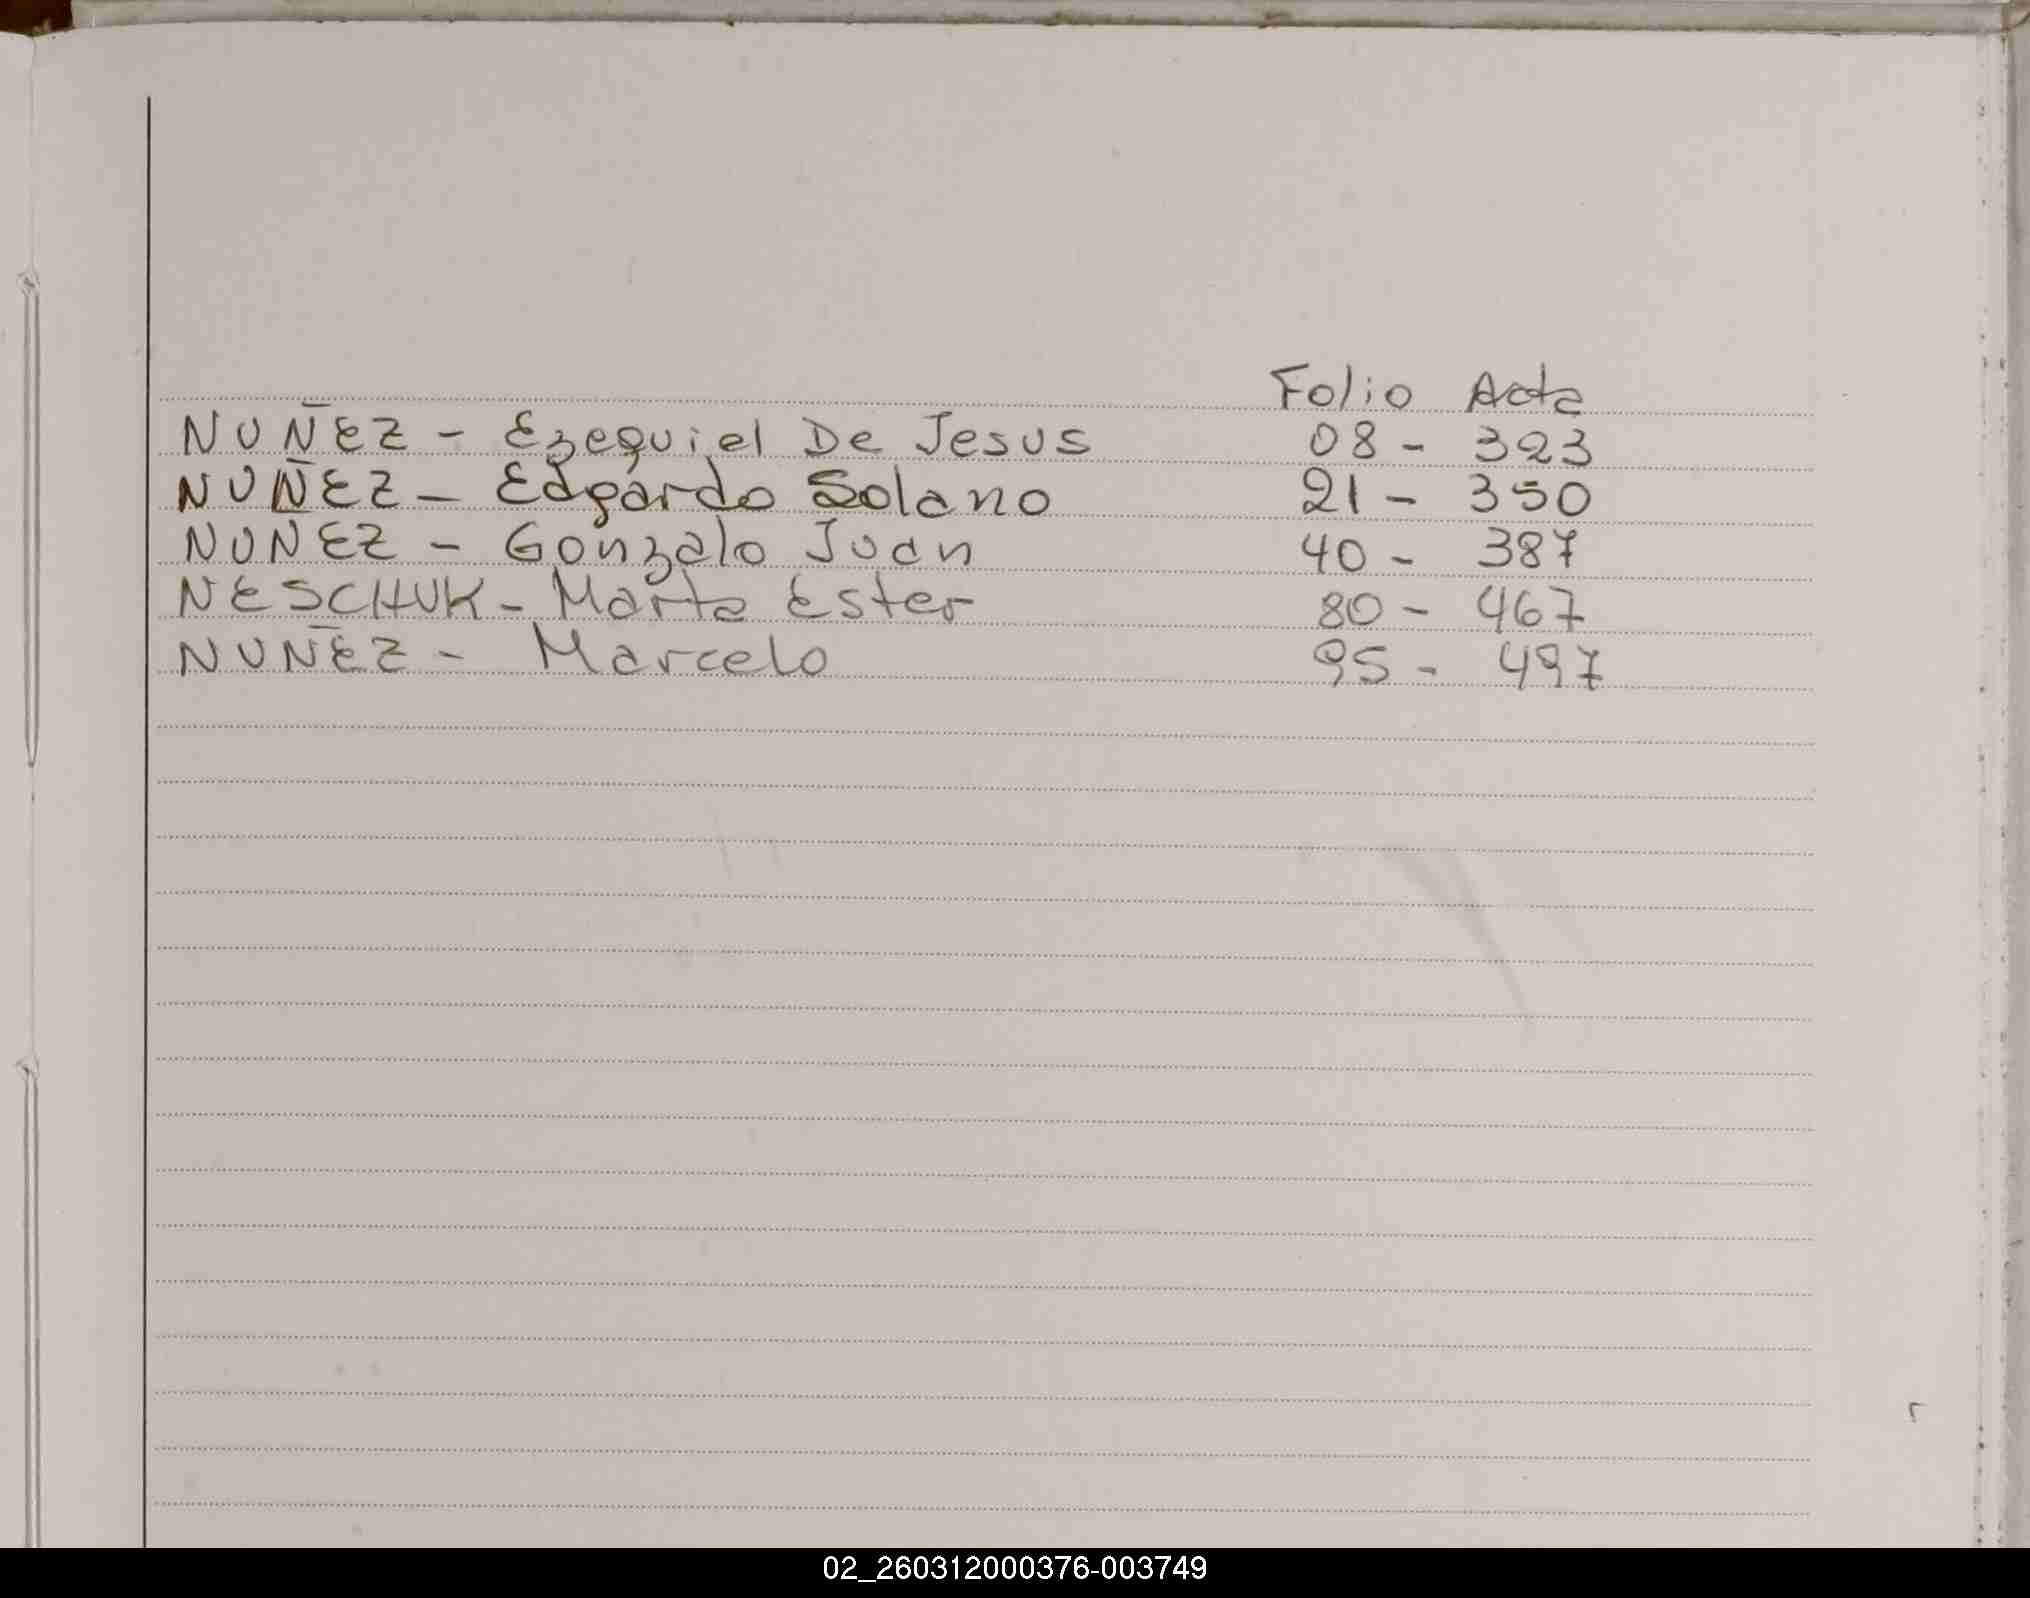 Folio Acta
NUÑEZ - Ezequiel De Jesus 08 - 323
NUÑEZ - Edgardo Solano 21 - 350
NUÑEZ - Gonzalo Juan 40 - 387
NESCHUK - Marta Ester 80 - 467
NUÑEZ - Marcelo 95 - 497
02_260312000376-003749